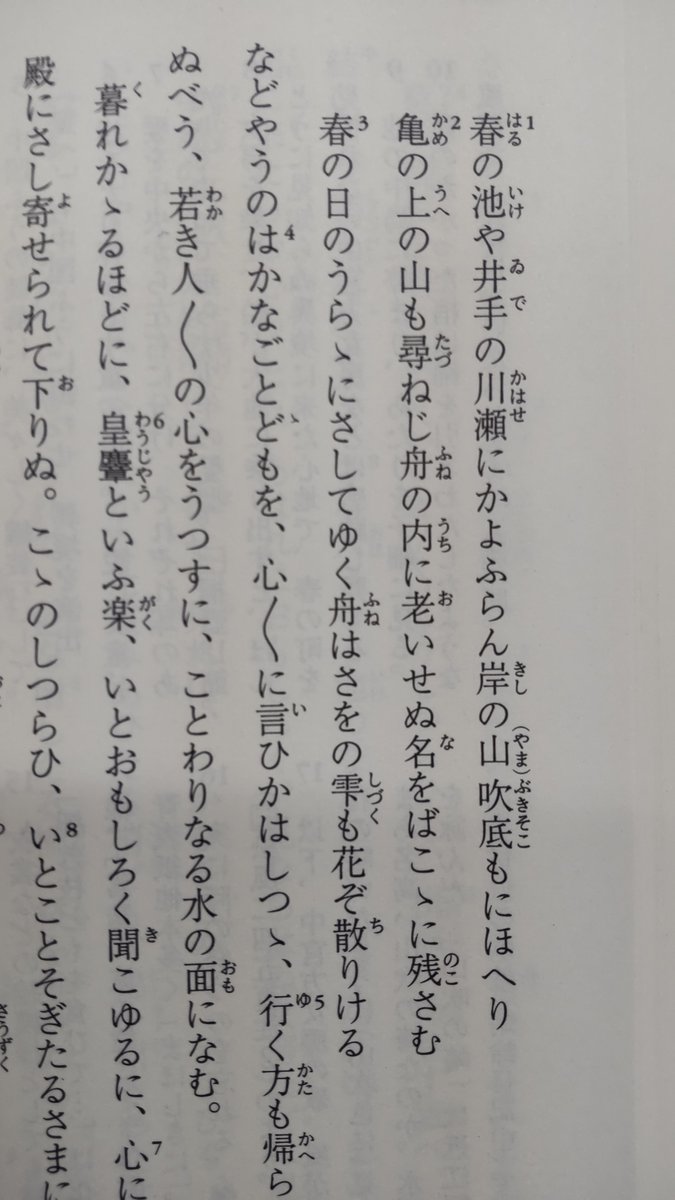 春の池や井手の川瀬にかよふらん岸の山吹底もにほへり
亀の上の山も尋ねじ舟の内に老いせぬ名をばこゝに残さむ
春の日のうらゝにさしてゆく舟はさをの雫も花ぞ散りける
などやうのはかなごとどもを、心〳〵に言ひかはしつゝ、行く方も帰ら
ぬべう、若き人〳〵の心をうつすに、ことわりなる水の面になむ。
暮れかゝるほどに、皇麞といふ楽、いとおもしろく聞こゆるに、心に
殿にさし寄せられて下りぬ。こゝのしつらひ、いとことそぎたるさまに